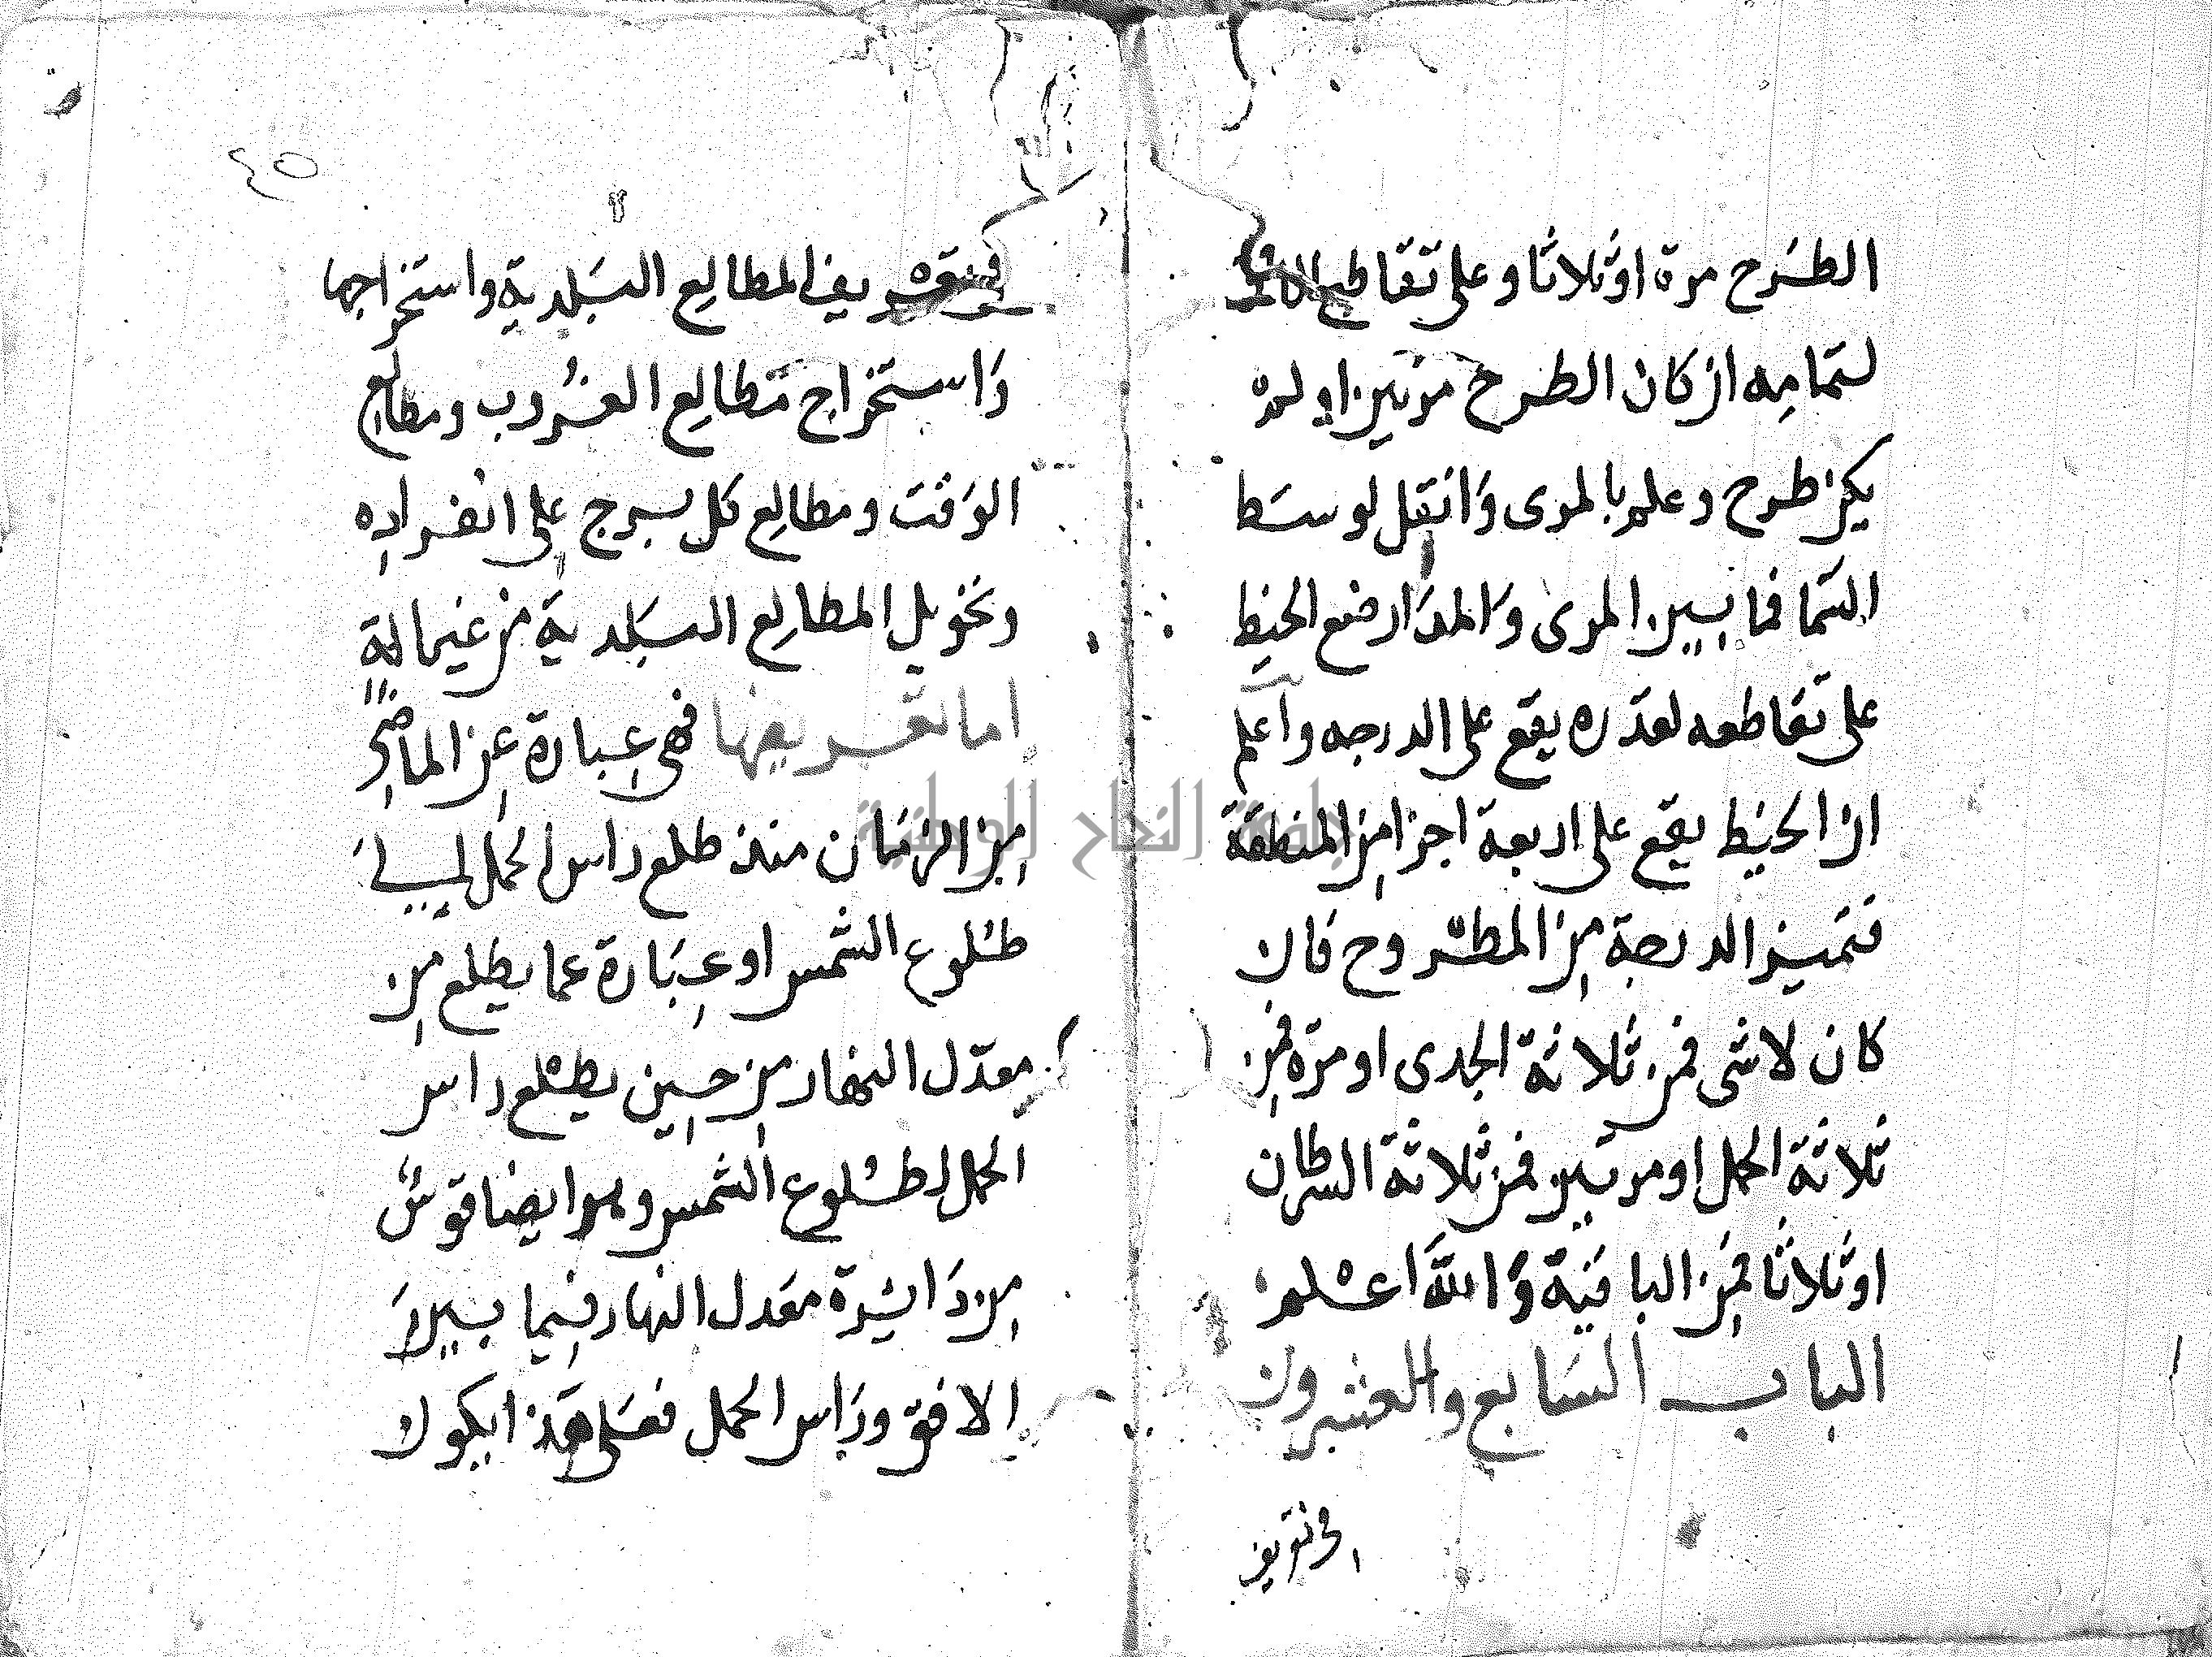 الطرح مرة اوثلاثا وعلى تقاطع
لتمامه ان كان الطرح مرتين اولم
يكن طرح وعلم بالمرى وانقل لوسط
السما فما بين المرى والمدار ضع الخيط
على تقاطعه لقدره يقع على الدرجه واعلم
ان الخيط يقع على اربعة اجزا من المنطقة
فتميز الدرجة من المطروح فان
كان لاشى فمن ثلاثة الجدى او مرة فمن
ثلاثة الحمل او مرتين فمن ثلاثة السرطان
اوثلاثا فمن الباقية والله اعلم
الباب السابع والعشرون
فى تعريف
٤٥
فى تعريف المطالع البلدية واستخراجها
واستخراج مطالع الغروب ومطالع
الوقت ومطالع كل برج على انفراده
وتحويل المطالع البلدية من غير مالة
اما تعريفها فهى عبارة عن الماضى
من الزمان منذ طلع راس الحمل الى
طلوع الشمس او عبارة عما يطلع من
معدل النهار من حين يطلع راس
الحمل لطلوع الشمس وهو ايضا قوس
من دائرة معدل النهار فيما بين
الافق وراس الحمل فعلى هذا يكون
جامعة النجاح الوطنية